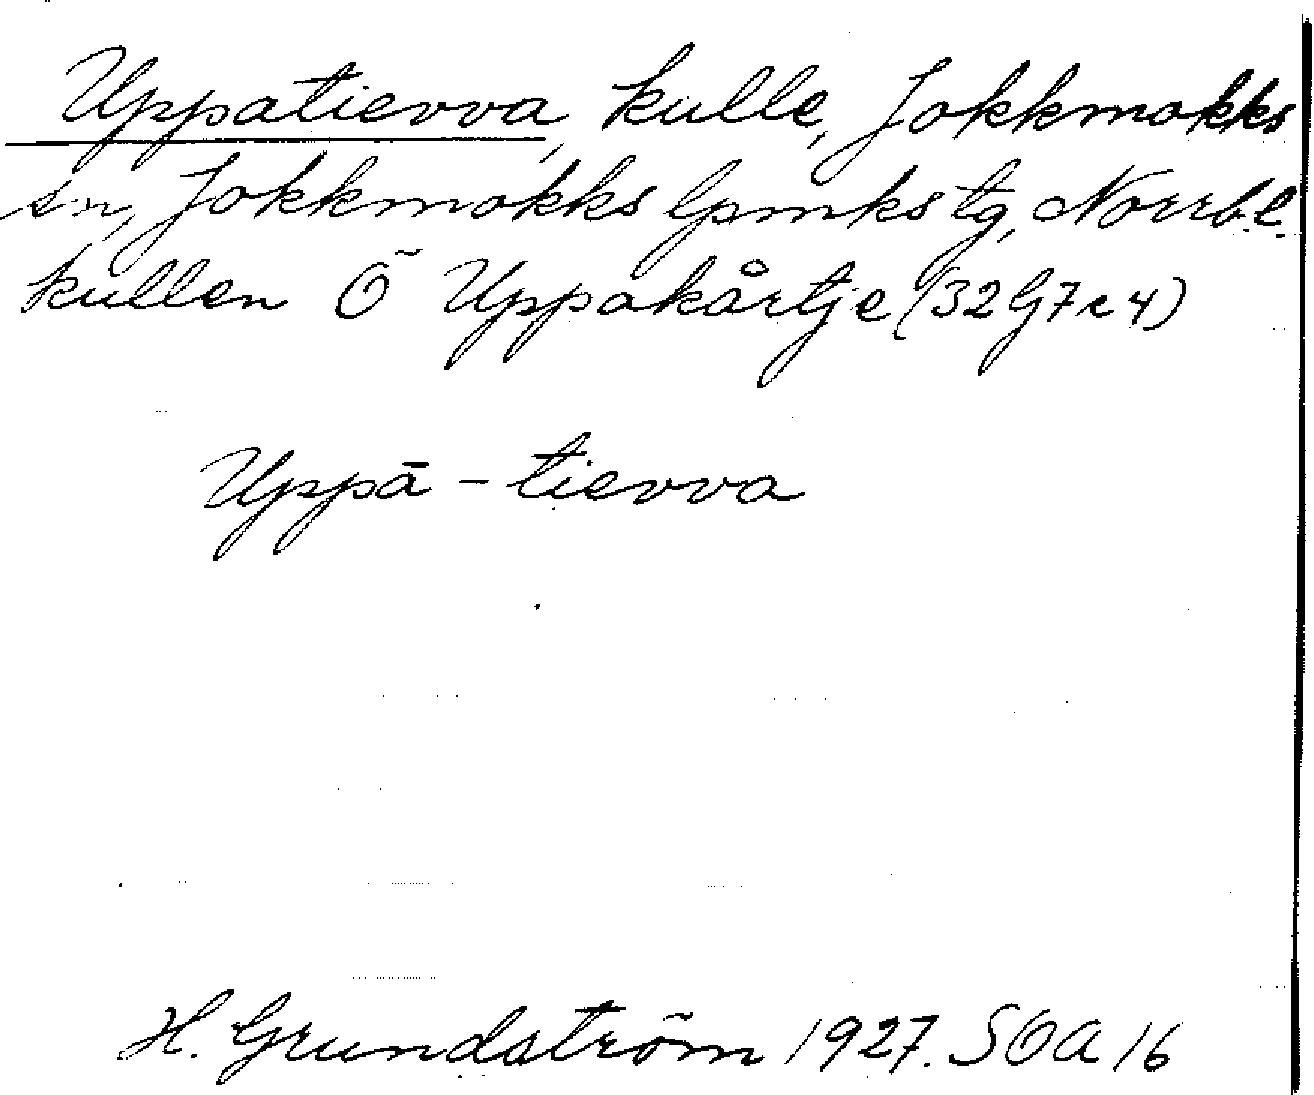 Uppatievva, kulle, Jokkmokks
sn, Jokkmokks lpmks tg, Norrb.l.
kullen Ö Uppakårtje (32G7c4)
Uppā - tievva
H. Grundström 1927. SOA 16